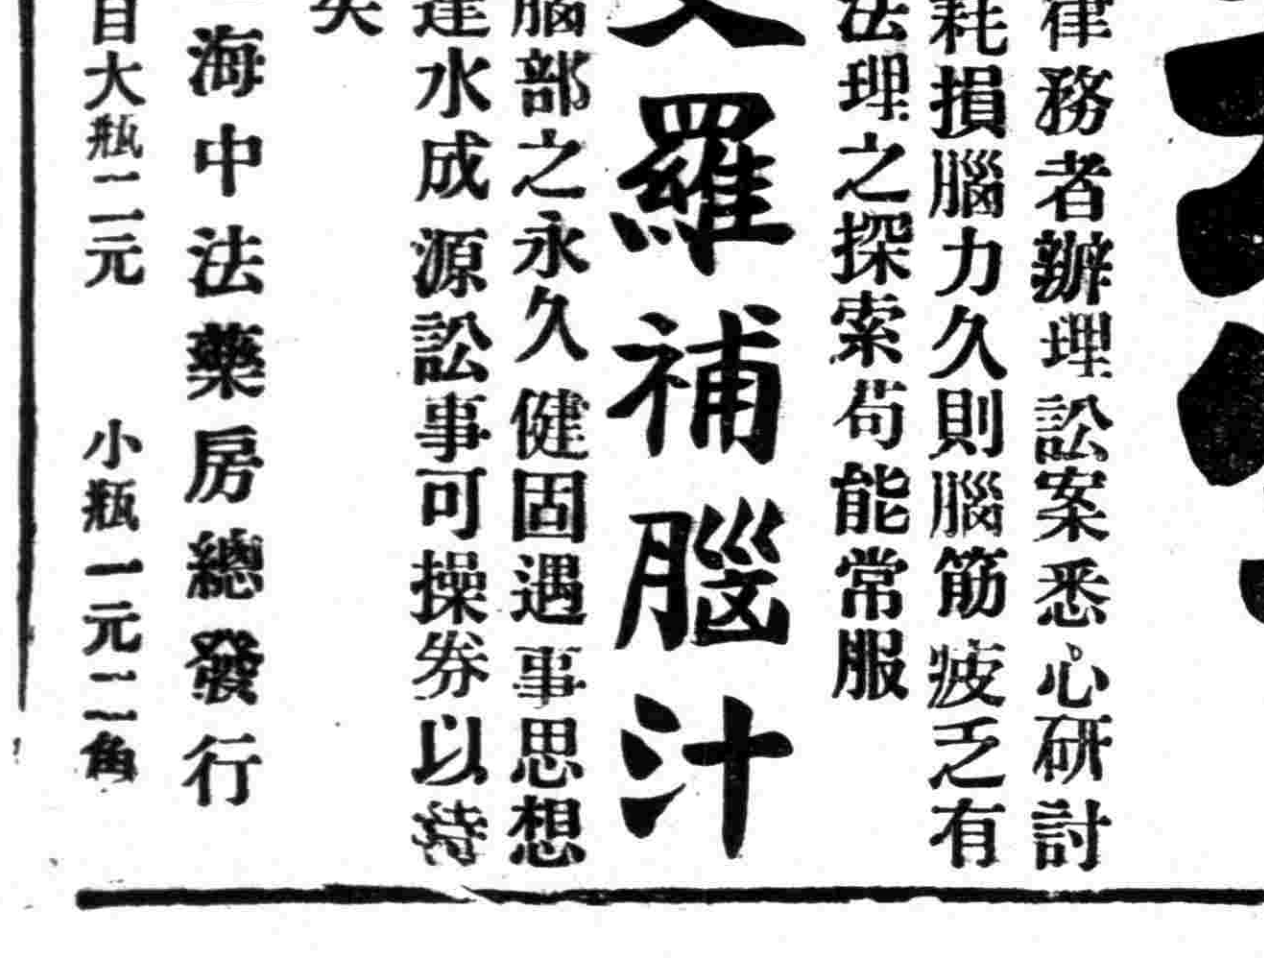 律務者辦理訟案悉心研討
耗損腦力久則腦筋疲乏有
法理之探索苟能常服
羅補腦汁
腦部之永久健固遇事思想
達水成源訟事可操券以待
矣
海中法藥房總發行
目大瓶二元　小瓶一元二角